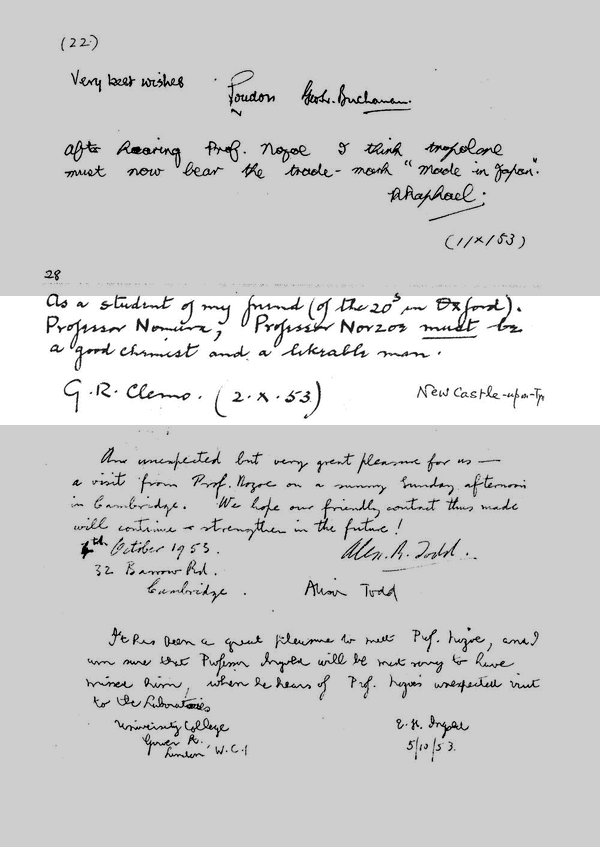 (22)
Very best wishes Loudon Geo. L. Buchanan.
After hearing Prof. Nozoe I think tropolone
must now bear the trade-mark "Made in Japan".
R Raphael.
(1/X/53)
28
As a student of my friend (of the 20s in Oxford).
Professor Nomura, Professor Norzoe must be
a good chemist and a likeable man.
G. R. Clemo. (2.X.53)
New Castle-upon-Tyn
An unexpected but very great pleasure for us —
a visit from Prof. Nozoe on a sunny Sunday afternoon
in Cambridge. We hope our friendly contact thus made
will continue & strengthen in the future!
4th October 1953. Alex. R. Todd.
32 Barrow Rd.
Cambridge. Alison Todd
It has been a great pleasure to meet Prof. Nozoe, and I
am sure that Professor Ingold will be most sorry to have
missed him, when he hears of Prof. Nozoe's unexpected visit
to the Laboratories
University College E. H. Ingold
Gower St. 5/10/53.
London W.C.1